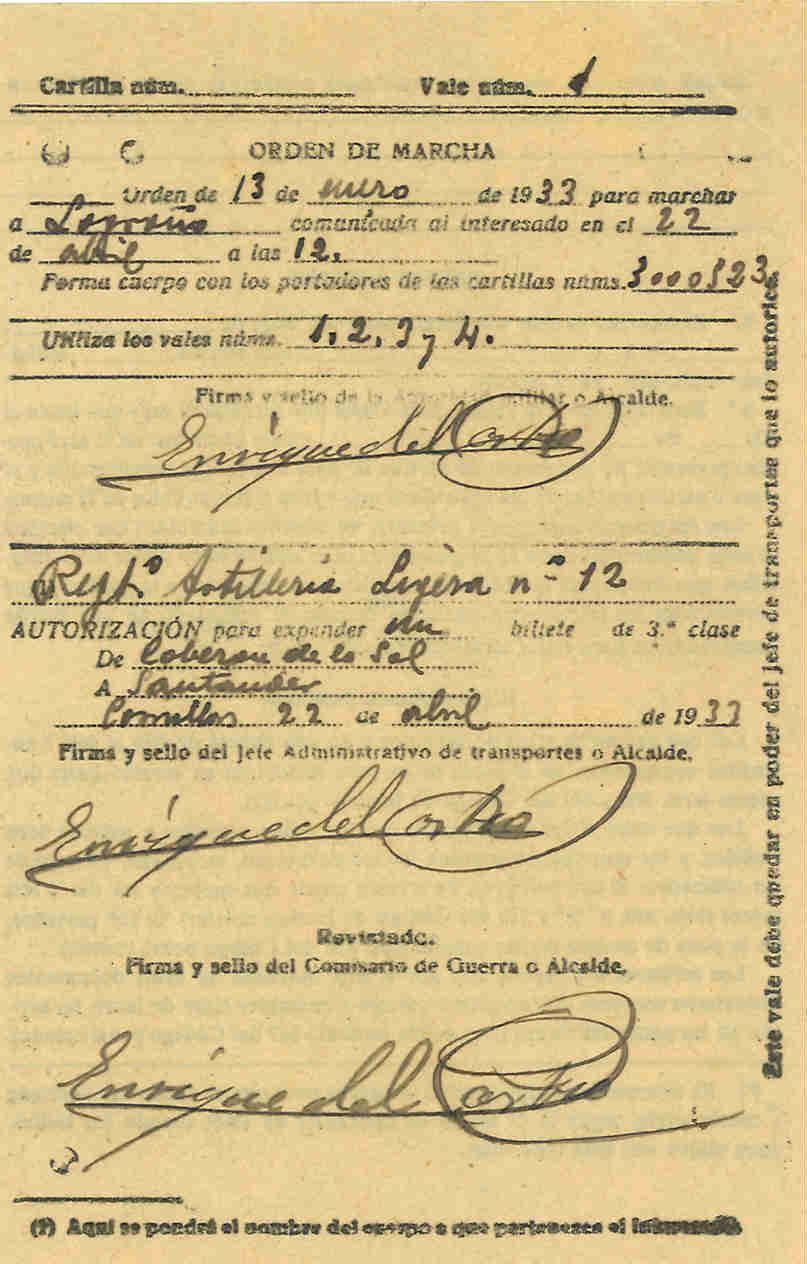 Cartilla núm. Vale núm. 1
ORDEN DE MARCHA
Orden de 13 de enero de 1933 para marchar
a Logroño comunicada al interesado en el 22
de abril a las 12.
Forma cuerpo con los portadores de las cartillas núms. 3000823
Utiliza los vales núms. 1, 2, 3 y 4.
Firma y sello de la Autoridad militar o Alcalde.
Enrique del
Regtº Artilleria Ligera nº 12
AUTORIZACIÓN para expender un billete de 3.ª clase
De de la Sal
A Santander
Comillas 22 de abril de 1933
Firma y sello del Jefe Administrativo de transportes o Alcalde.
Enrique del
Revistado.
Firma y sello del Comisario de Guerra o Alcalde.
Enrique del
(1) Aquí se pondrá el nombre del cuerpo a que pertenezca el interesado.
Este vale debe quedar en poder del jefe de transportes que lo autorice